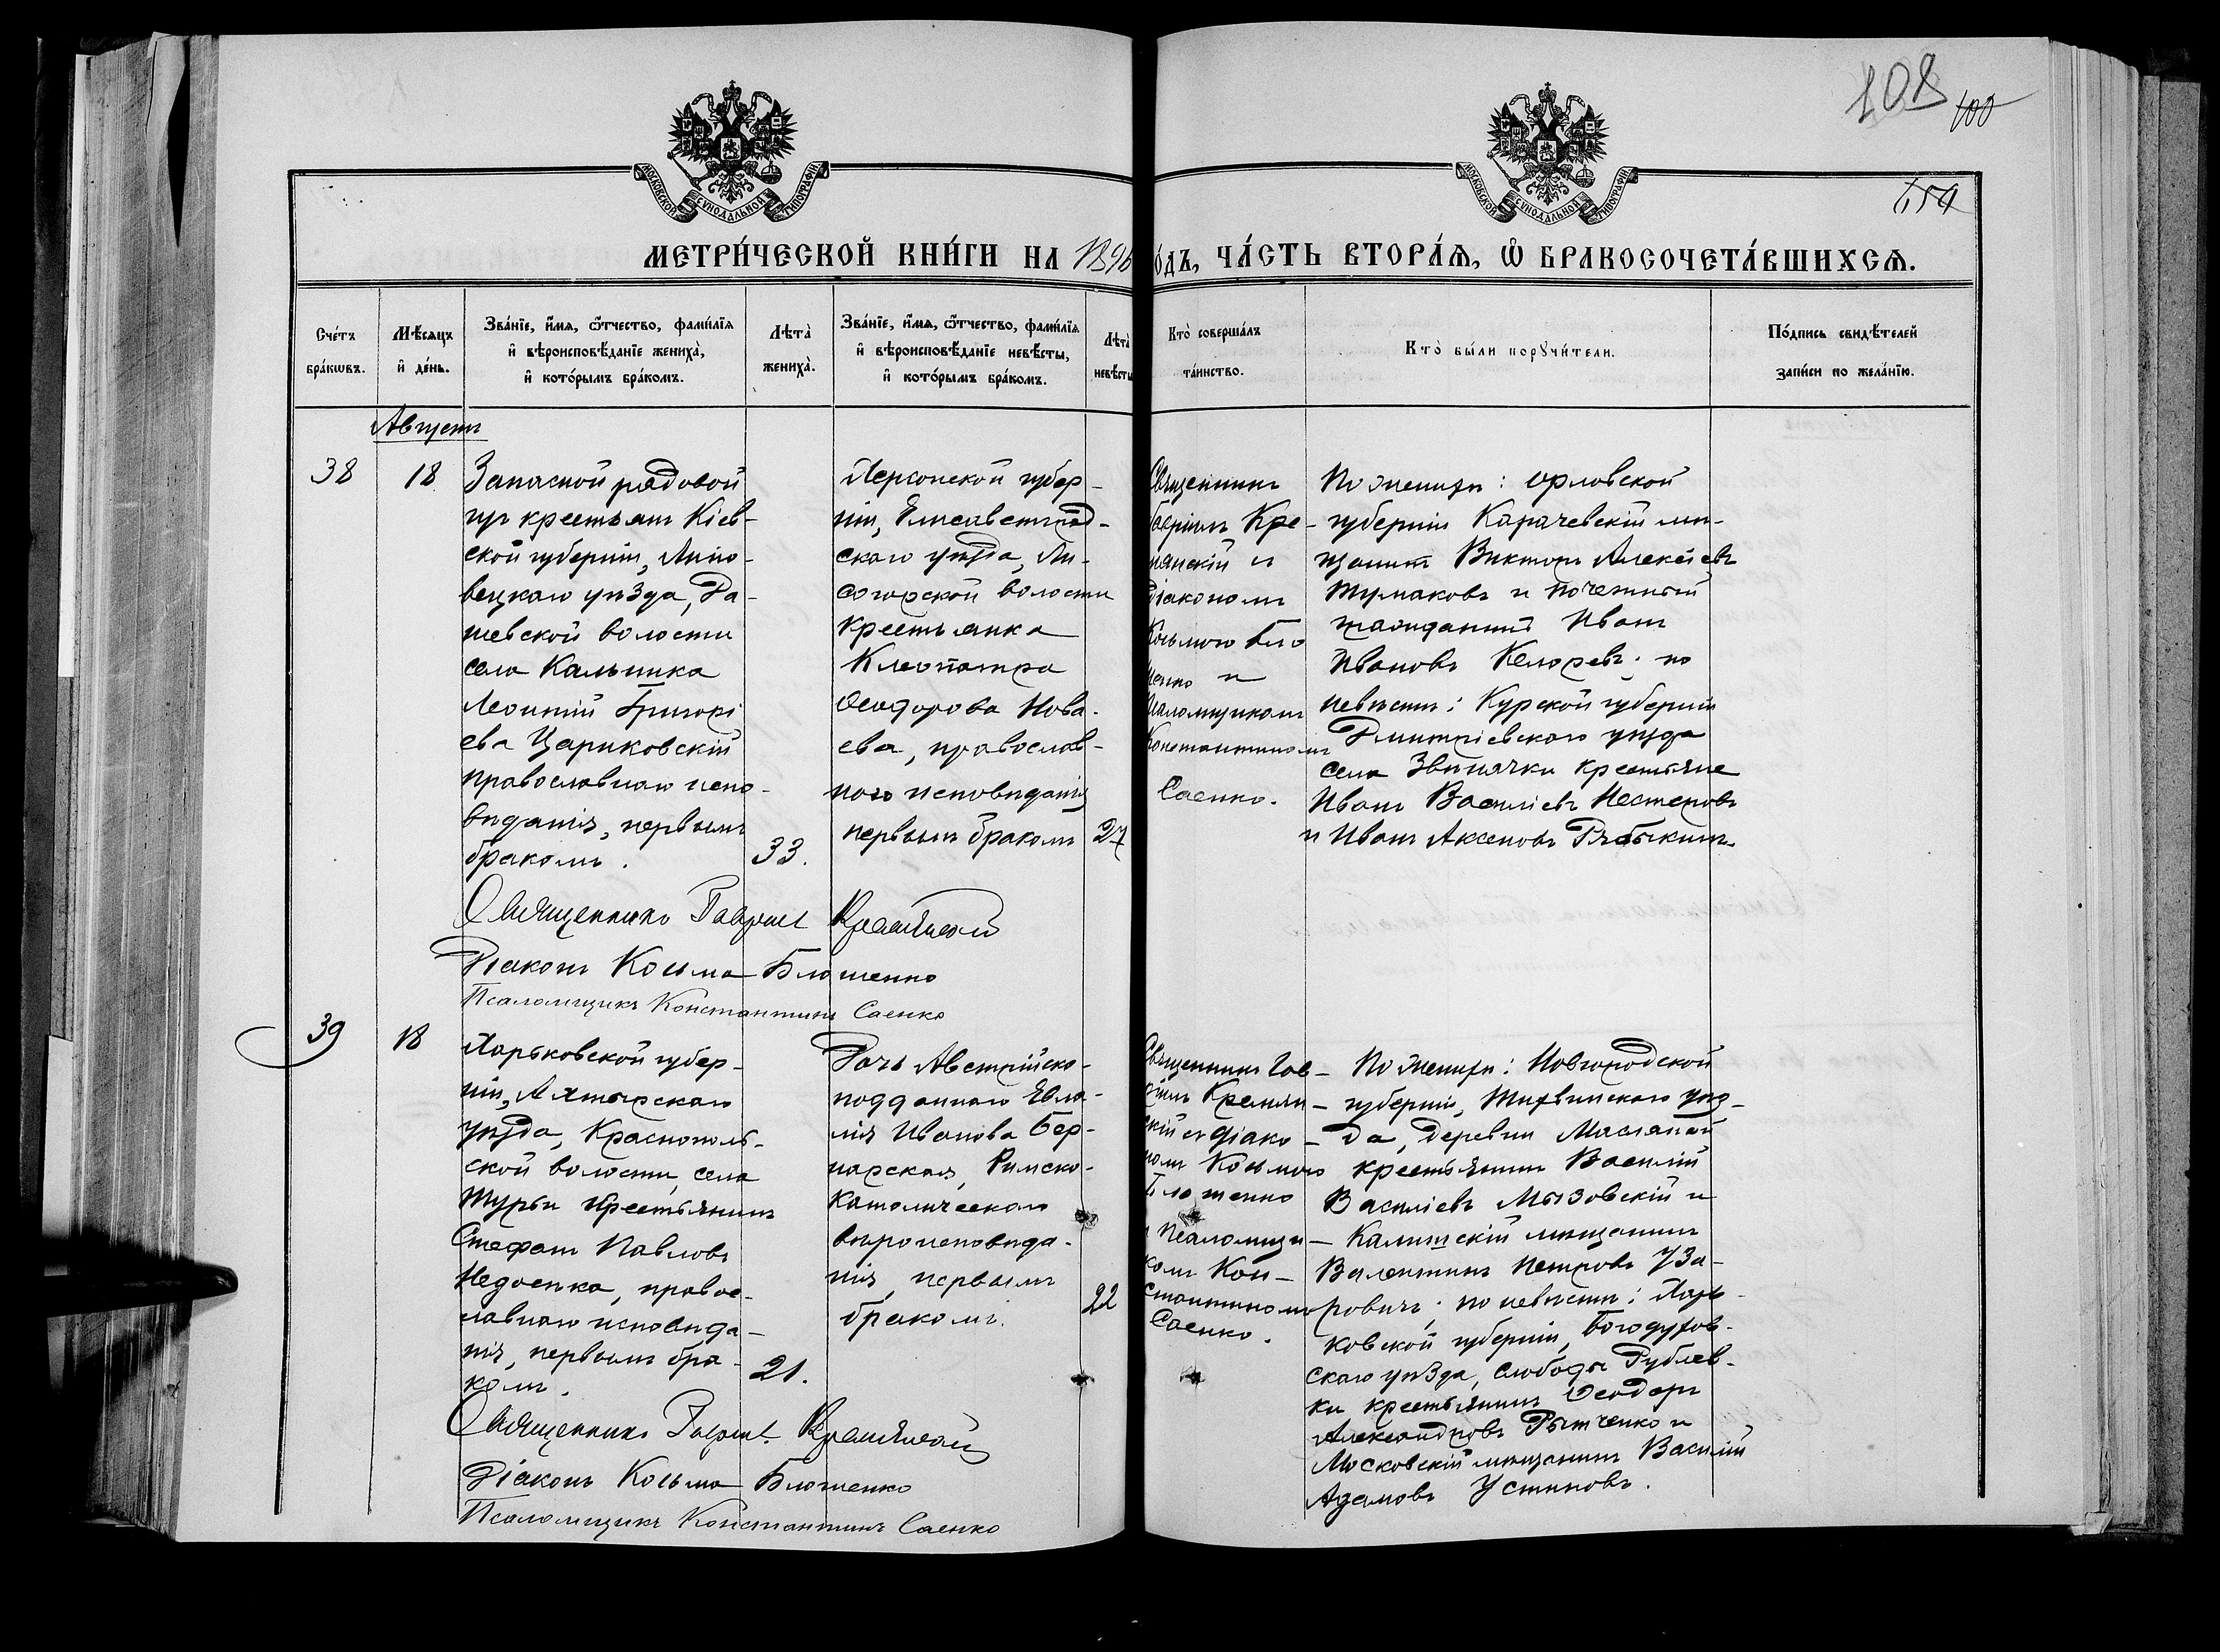 108
100
МОСКОВСКОЙ СѴНОДАЛЬНОЙ ТИПОГРАФІИ
МОСКОВСКОЙ СѴНОДАЛЬНОЙ ТИПОГРАФІИ
МЕТРИ́ЧЕСКОЙ КНИ́ГИ НА 1896
О́ДЪ, ЧА́СТЬ ВТОРА́Я, Ѽ БРАКОСОЧЕТА́ВШИХСЯ.
Сче́тъ
бра́кѡвъ.
Мѣ́сяцъ
и҆ де́нь.
Зва́нїе, и҆́мя, ѻ҆́тчество, фами́лїя
и҆ вѣроисповѣ́данїе жениха̀,
и҆ кото́рымъ бра́комъ.
Лѣта̀
жениха̀.
Зва́нїе, и҆́мя, ѻ҆́тчество, фами́лїя
и҆ вѣроисповѣ́данїе невѣ́сты,
и҆ кото́рымъ бра́комъ.
Лѣта̀
невѣ́сты
Кто̀ соверша́лъ
та́инство.
Кто̀ бы́ли порꙋчи́тели.
По́дпись свидѣ́телей
за́писи по жела́нїю.
Августъ
38
18
Запасной рядовой
изъ крестьянъ Кіев-
ской губерніи, Липо-
вецкаго уѣзда, Да-
шевской волости
села Кальника
Леонтій Григорі
евъ Цариковскій
православнаго испо-
вѣданія, первымъ
бракомъ.
33.
Херсонской губер-
ніи, Елисаветград-
скаго уѣзда, Лы-
согорской волости
крестьянка
Клеопатра
Ѳеодорова Нова-
ева, православ-
наго исповѣданія
первымъ бракомъ
27
Священникъ
Гавріилъ Кре-
мянскій и
діакономъ
Косьмою Бло
шенко и
псаломщикомъ
Константиномъ
Саенко.
По женихѣ: Орловской
губерніи Карачевскій мѣ-
щанинъ Викторъ Алексѣевъ
Тумаковъ и почетный
гражданинъ Иванъ
Ивановъ по
невѣстѣ: Курской губерніи
Дмитріевскаго уѣзда
села Звѣнячки крестьяне
Иванъ Василіевъ Нестеровъ
и Иванъ Аксеновъ Рябыкинъ.
Священникъ Гавріилъ Кремянскій
Діаконъ Косьма Блошенко
Псаломщикъ Константинъ Саенко
39
18
Харьковской губер-
ніи, Ахтырскаго
уѣзда, Краснополь-
ской волости, села
Турьи крестьянинъ
Стефанъ Павловъ
Недоенка, правос-
лавнаго исповѣда-
нія, первымъ бра-
комъ.
21.
Дочь Австрійско-
подданнаго Евла-
лія Иванова Бер-
нарская, Римско-
католическаго
вѣроисповѣда-
нія, первымъ
бракомъ.
22
Священникъ Гав-
ріилъ Кремян-
скій съ діако-
номъ Косьмою
Блошенко
и псаломщи-
комъ Кон-
стантиномъ
Саенко.
По женихѣ: Новгородской
губерніи, Тихвинскаго уѣз-
да, деревни Масляной
крестьянинъ Василій
Василіевъ Мызовскій и
Калишскій мѣщанинъ
Валентинъ Петровъ Уза-
ровичъ; по невѣстѣ: Харь-
ковской губерніи, Богодухов-
скаго уѣзда, слободы Рублев-
ки крестьянинъ Ѳеодоръ
Александровъ Рытченко и
Московскій мѣщанинъ Василій
Адамовъ Устиновъ.
Священникъ Гавріилъ Кремянскій
Діаконъ Косьма Блошенко
Псаломщикъ Константинъ Саенко